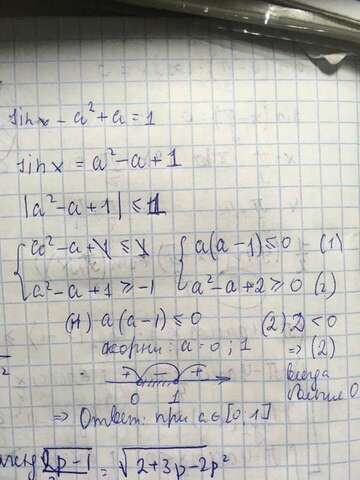 sin x - a² + a = 1
sin x = a² - a + 1
|a² - a + 1| ≤ 1
{ a² - a + 1 ≤ 1 { a(a - 1) ≤ 0 - (1)
a² - a + 1 ≥ -1 a² - a + 2 ≥ 0 (2)
(1) a(a - 1) ≤ 0 (2) D < 0
корни: a = 0 ; 1 ⇒ (2)
+ - + всегда
0 1 0
⇒ Ответ: при a ∈ [0, 1]
2p - 1 = √2 + 3p - 2p²